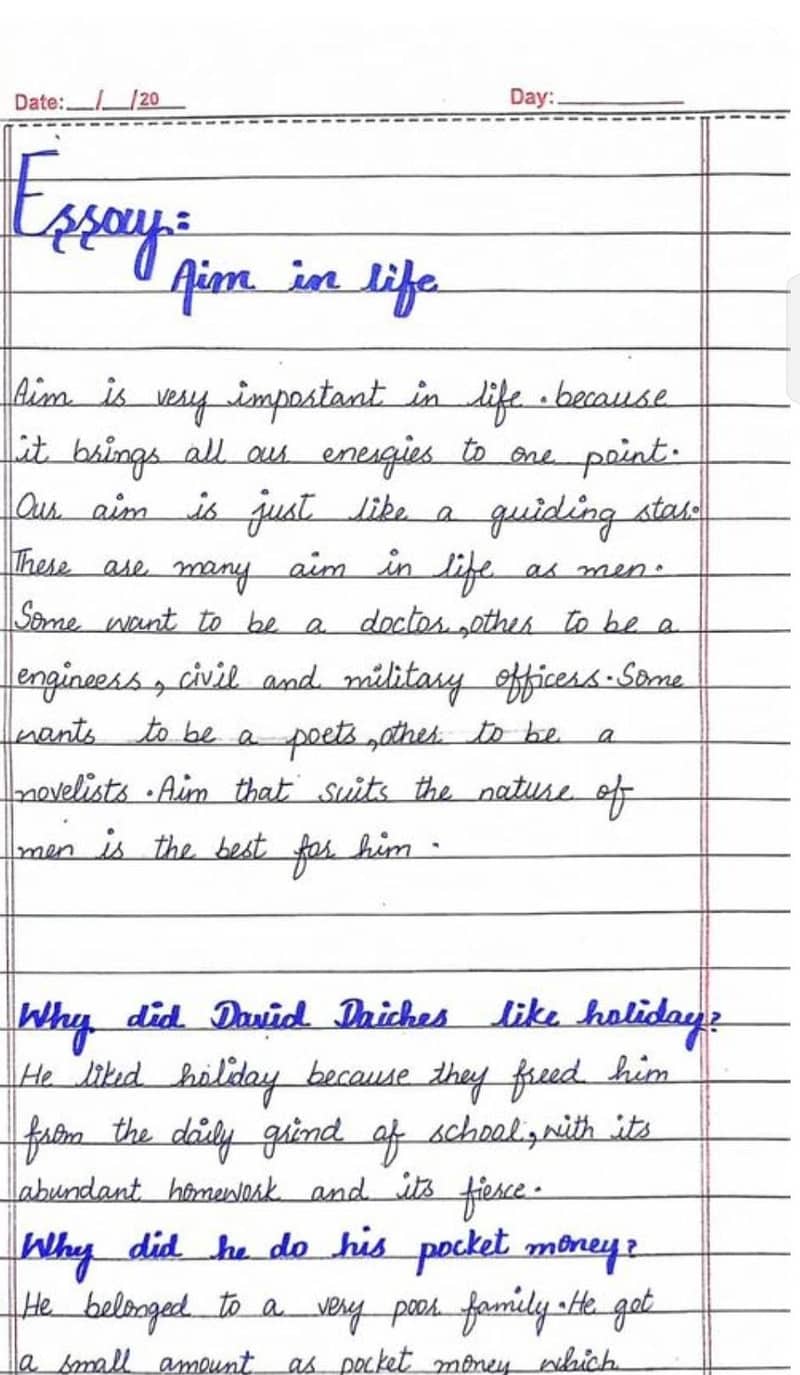 Date: __/__/20__ Day: ________
Essay:
Aim in life
Aim is very important in life . because
it brings all our energies to one point.
Our aim is just like a guiding star.
These are many aim in life as men.
Some want to be a doctor, other to be a
engineers, civil and military officers. Some
wants to be a poets, other to be a
novelists . Aim that suits the nature of
men is the best for him .
Why did David Daiches like holiday?
He liked holiday because they freed him
from the daily grind of school, with its
abundant homework and its fierce.
Why did he do his pocket money?
He belonged to a very poor family. He got
a small amount as pocket money which